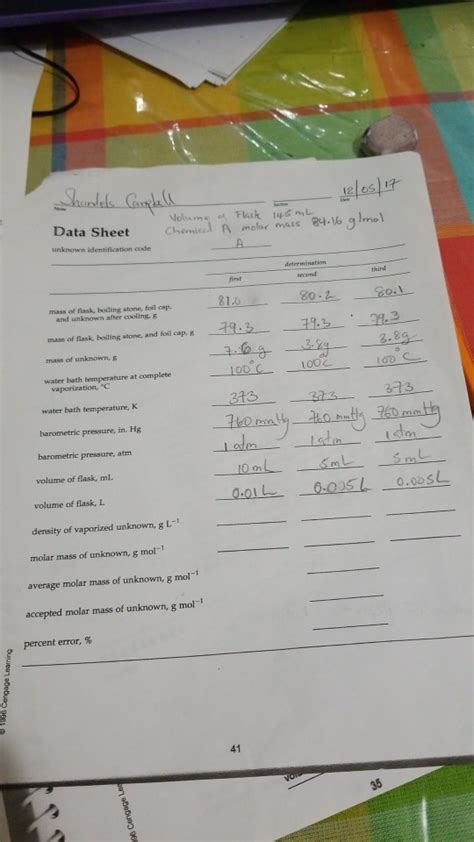 12/05/17
Name
Section
Date
Volume of Flask 145 mL
Data Sheet
Chemical A molar mass 84.16 g/mol
unknown identification code A
determination
first second third
mass of flask, boiling stone, foil cap, and unknown after cooling, g 81.0 80.2 80.1
mass of flask, boiling stone, and foil cap, g 79.3 79.3 79.3
mass of unknown, g 7.6 g 3.8g 3.8g
water bath temperature at complete vaporization, °C 100°C 100°C 100°C
water bath temperature, K 373 373 373
barometric pressure, in. Hg 760 mmHg 760 mmHg 760 mmHg
barometric pressure, atm 1 atm 1 atm 1 atm
volume of flask, mL 10 mL 5mL 5mL
volume of flask, L 0.01L 0.005L 0.005L
density of vaporized unknown, g L⁻¹
molar mass of unknown, g mol⁻¹
average molar mass of unknown, g mol⁻¹
accepted molar mass of unknown, g mol⁻¹
percent error, %
© 1996 Cengage Learning
41
35